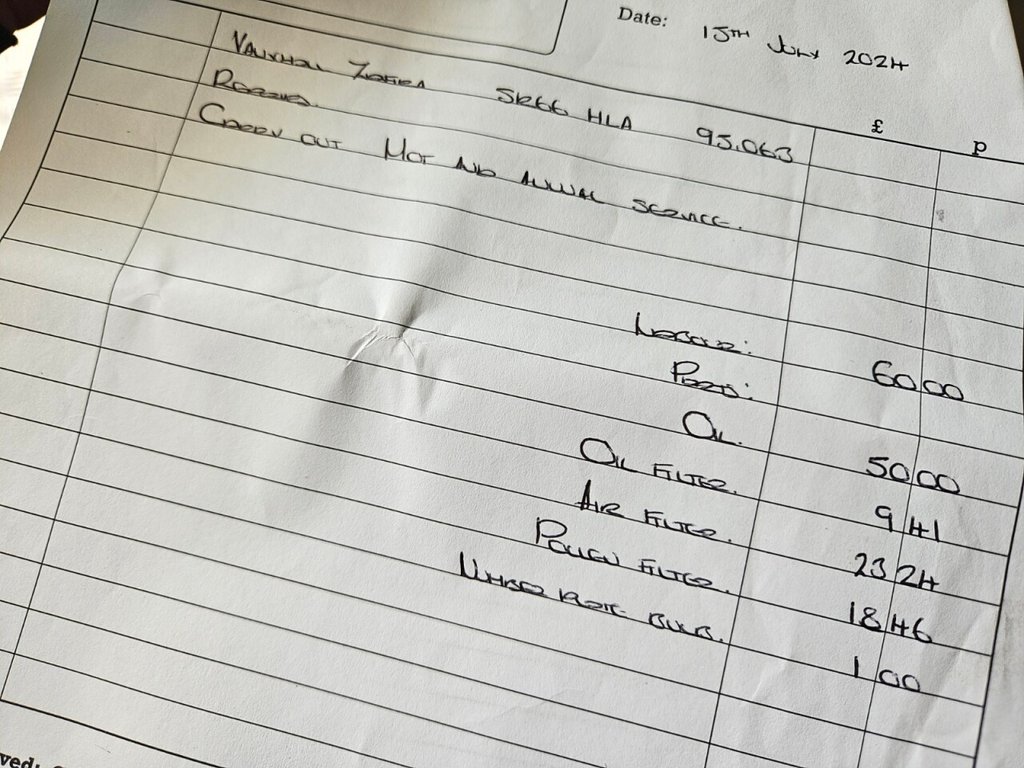 Date: 15TH JULY 2024
£ P
VAUXHALL ZAFIRA SK66 HLA 95,063
REQUIRED.
CARRY OUT MOT AND ANNUAL SERVICE.
LABOUR: 60 00
PARTS:
OIL. 50 00
OIL FILTER. 9 41
AIR FILTER. 23 24
POLLEN FILTER. 18 46
NUMBER PLATE BULB. 1 00
ved: